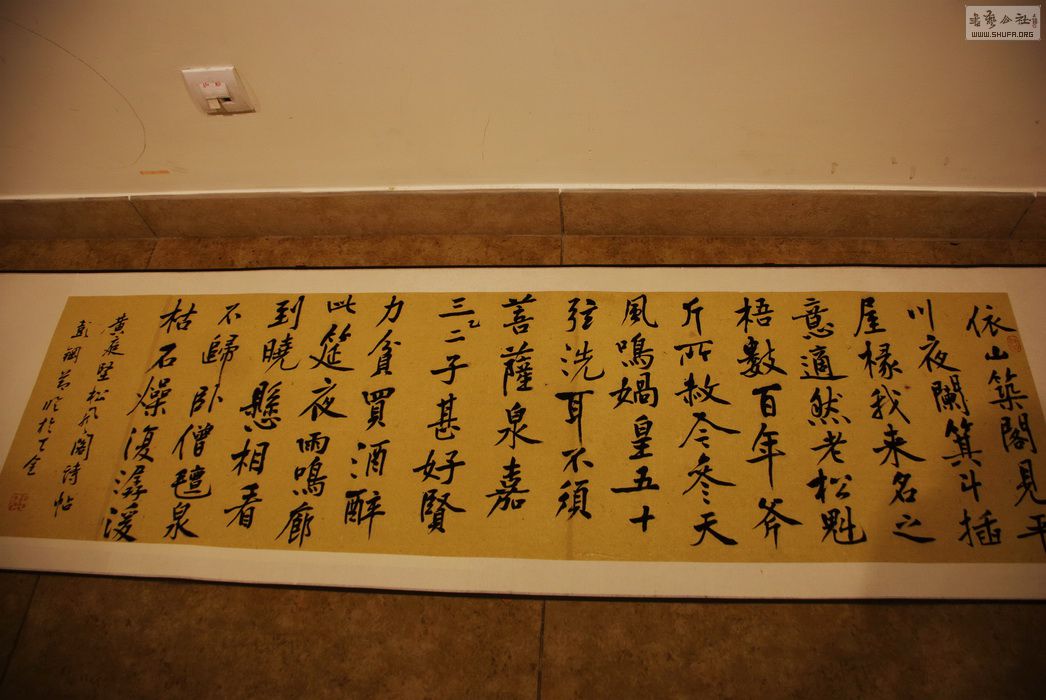 依山築閣見平
川夜闌箕斗插
屋椽我来名之
意適然老松魁
梧數百年斧
斤所赦今参天
風鳴媧皇五十
弦洗耳不須
菩薩泉嘉
三二子甚好賢
力貧買酒醉
此筵夜雨鳴廊
到曉懸相看
不歸卧僧氊泉
枯石燥復潺湲
黄庭堅松风閣詩帖
書藝公社
WWW.SHUFA.ORG